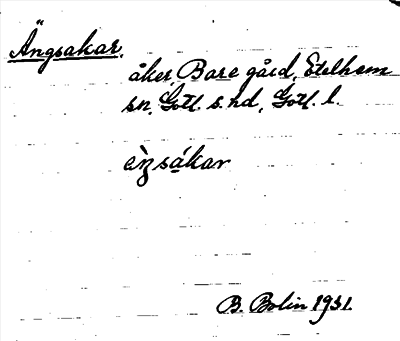 Ängsakar.
åker, Bare gård, Etelhem
sn, Gotl. s. hd, Gotl. l.
èŋsákar
B. Bolin 1931.